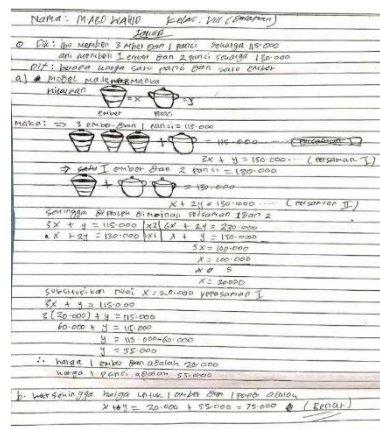 Nama : MABO WAHID Kelas : VIII (Delapan)
Jawab
Dik : ibu membeli 3 ember dan 1 panci seharga 115.000
ani membeli 1 ember dan 2 panci seharga 130.000
Dit : berapa harga satu panci dan satu ember
a) Model matematikanya
misalkan = x = y
ember panci
Maka : => 3 ember dan 1 panci = 115.000
+ = 115.000 ....
3x + y = 150.000 .... (persamaan I)
=> 1 ember dan 2 panci = 130.000
+ = 130.000
x + 2y = 130.000 .... (persamaan II)
Sehingga diperoleh eliminasi persamaan 1 dan 2
3x + y = 115.000 | x2 | 6x + 2y = 230.000
x + 2y = 130.000 | x1 | x + y = 130.000
5x = 100.000
x = 100.000
5
x = 20.000
Substitusikan nilai x = 20.000 persamaan I
3x + y = 115.000
3 (20.000) + y = 115.000
60.000 + y = 115.000
y = 115.000 - 60.000
y = 55.000
∴ harga 1 ember dan adalah 20.000
harga 1 panci adalah 55.000
b. sehingga harga untuk 1 ember dan 1 panci adalah
x + y = 20.000 + 55.000 = 75.000 (Benar)